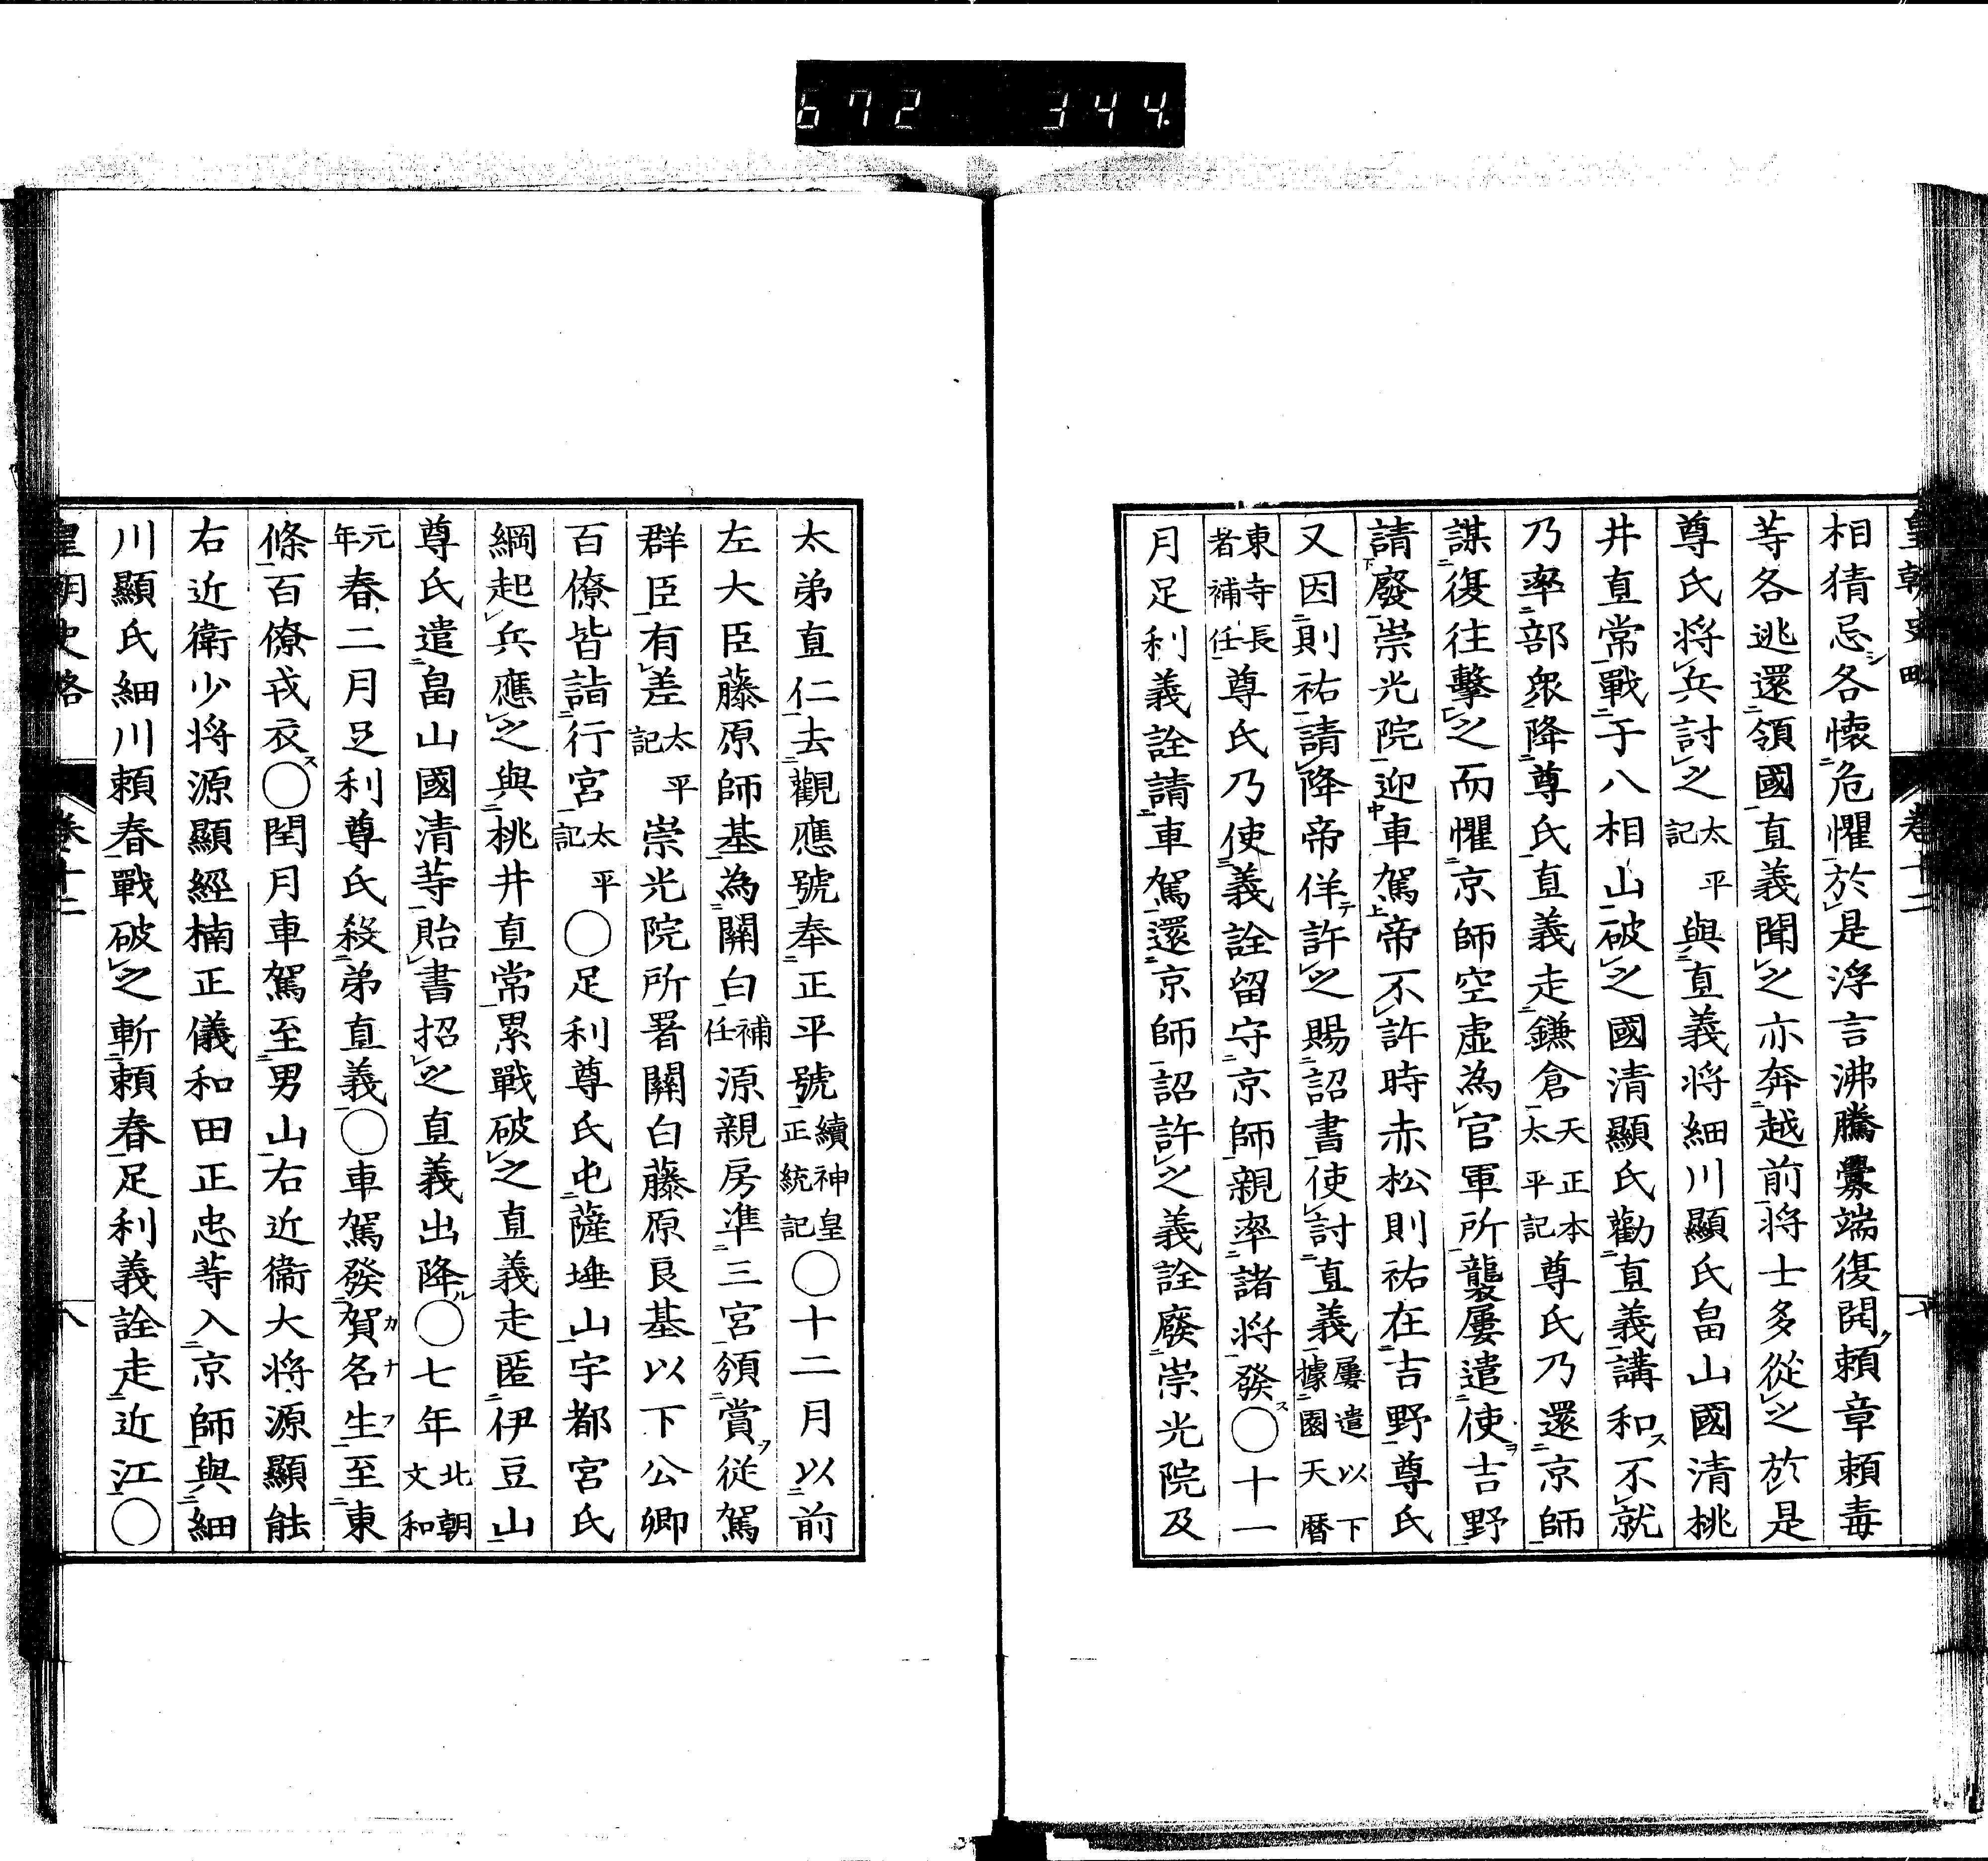 672 344.
皇朝史略 卷十二
相猜忌シ各懷危懼於是浮言沸騰釁端復開ク賴章賴毒
等各逃還領國直義聞之亦奔越前將士多從之於是
尊氏将兵討之太平記與直義将細川顯氏畠山國清桃
井直常戰于八相山破之國清顯氏勸直義講和ス不就
乃率部衆降尊氏直義走鎌倉天正本太平記尊氏乃還京師
謀復往擊之而懼京師空虛為官軍所襲屢遣使ヲ吉野
請廢崇光院迎車駕帝不許時赤松則祐在吉野尊氏
又因則祐請降帝佯テ許之賜詔書使討直義屢遣以下據園天曆
東寺長者補任尊氏乃使義詮留守京師親率諸将發ス○十一
月足利義詮請車駕還京師詔許之義詮廢崇光院及
太弟直仁去觀應號奉正平號續神皇正統記○十二月以前
左大臣藤原師基為關白補任源親房準三宮頒賞ヲ從駕
群臣有差太平記崇光院所署關白藤原良基以下公卿
百僚皆詣行宮太平記○足利尊氏屯薩埵山宇都宮氏
綱起兵應之與桃井直常累戰破之直義走匿伊豆山
尊氏遣畠山國清等貽書招之直義出降ル○七年北朝文和
元年春二月足利尊氏殺弟直義○車駕發賀名生カナフ至東
條百僚戎衣ス○閏月車駕至男山右近衛大将源顯能
右近衛少将源顯經楠正儀和田正忠等入京師與細
川顯氏細川賴春戰破之斬賴春足利義詮走近江○
皇朝史略 卷十二 八